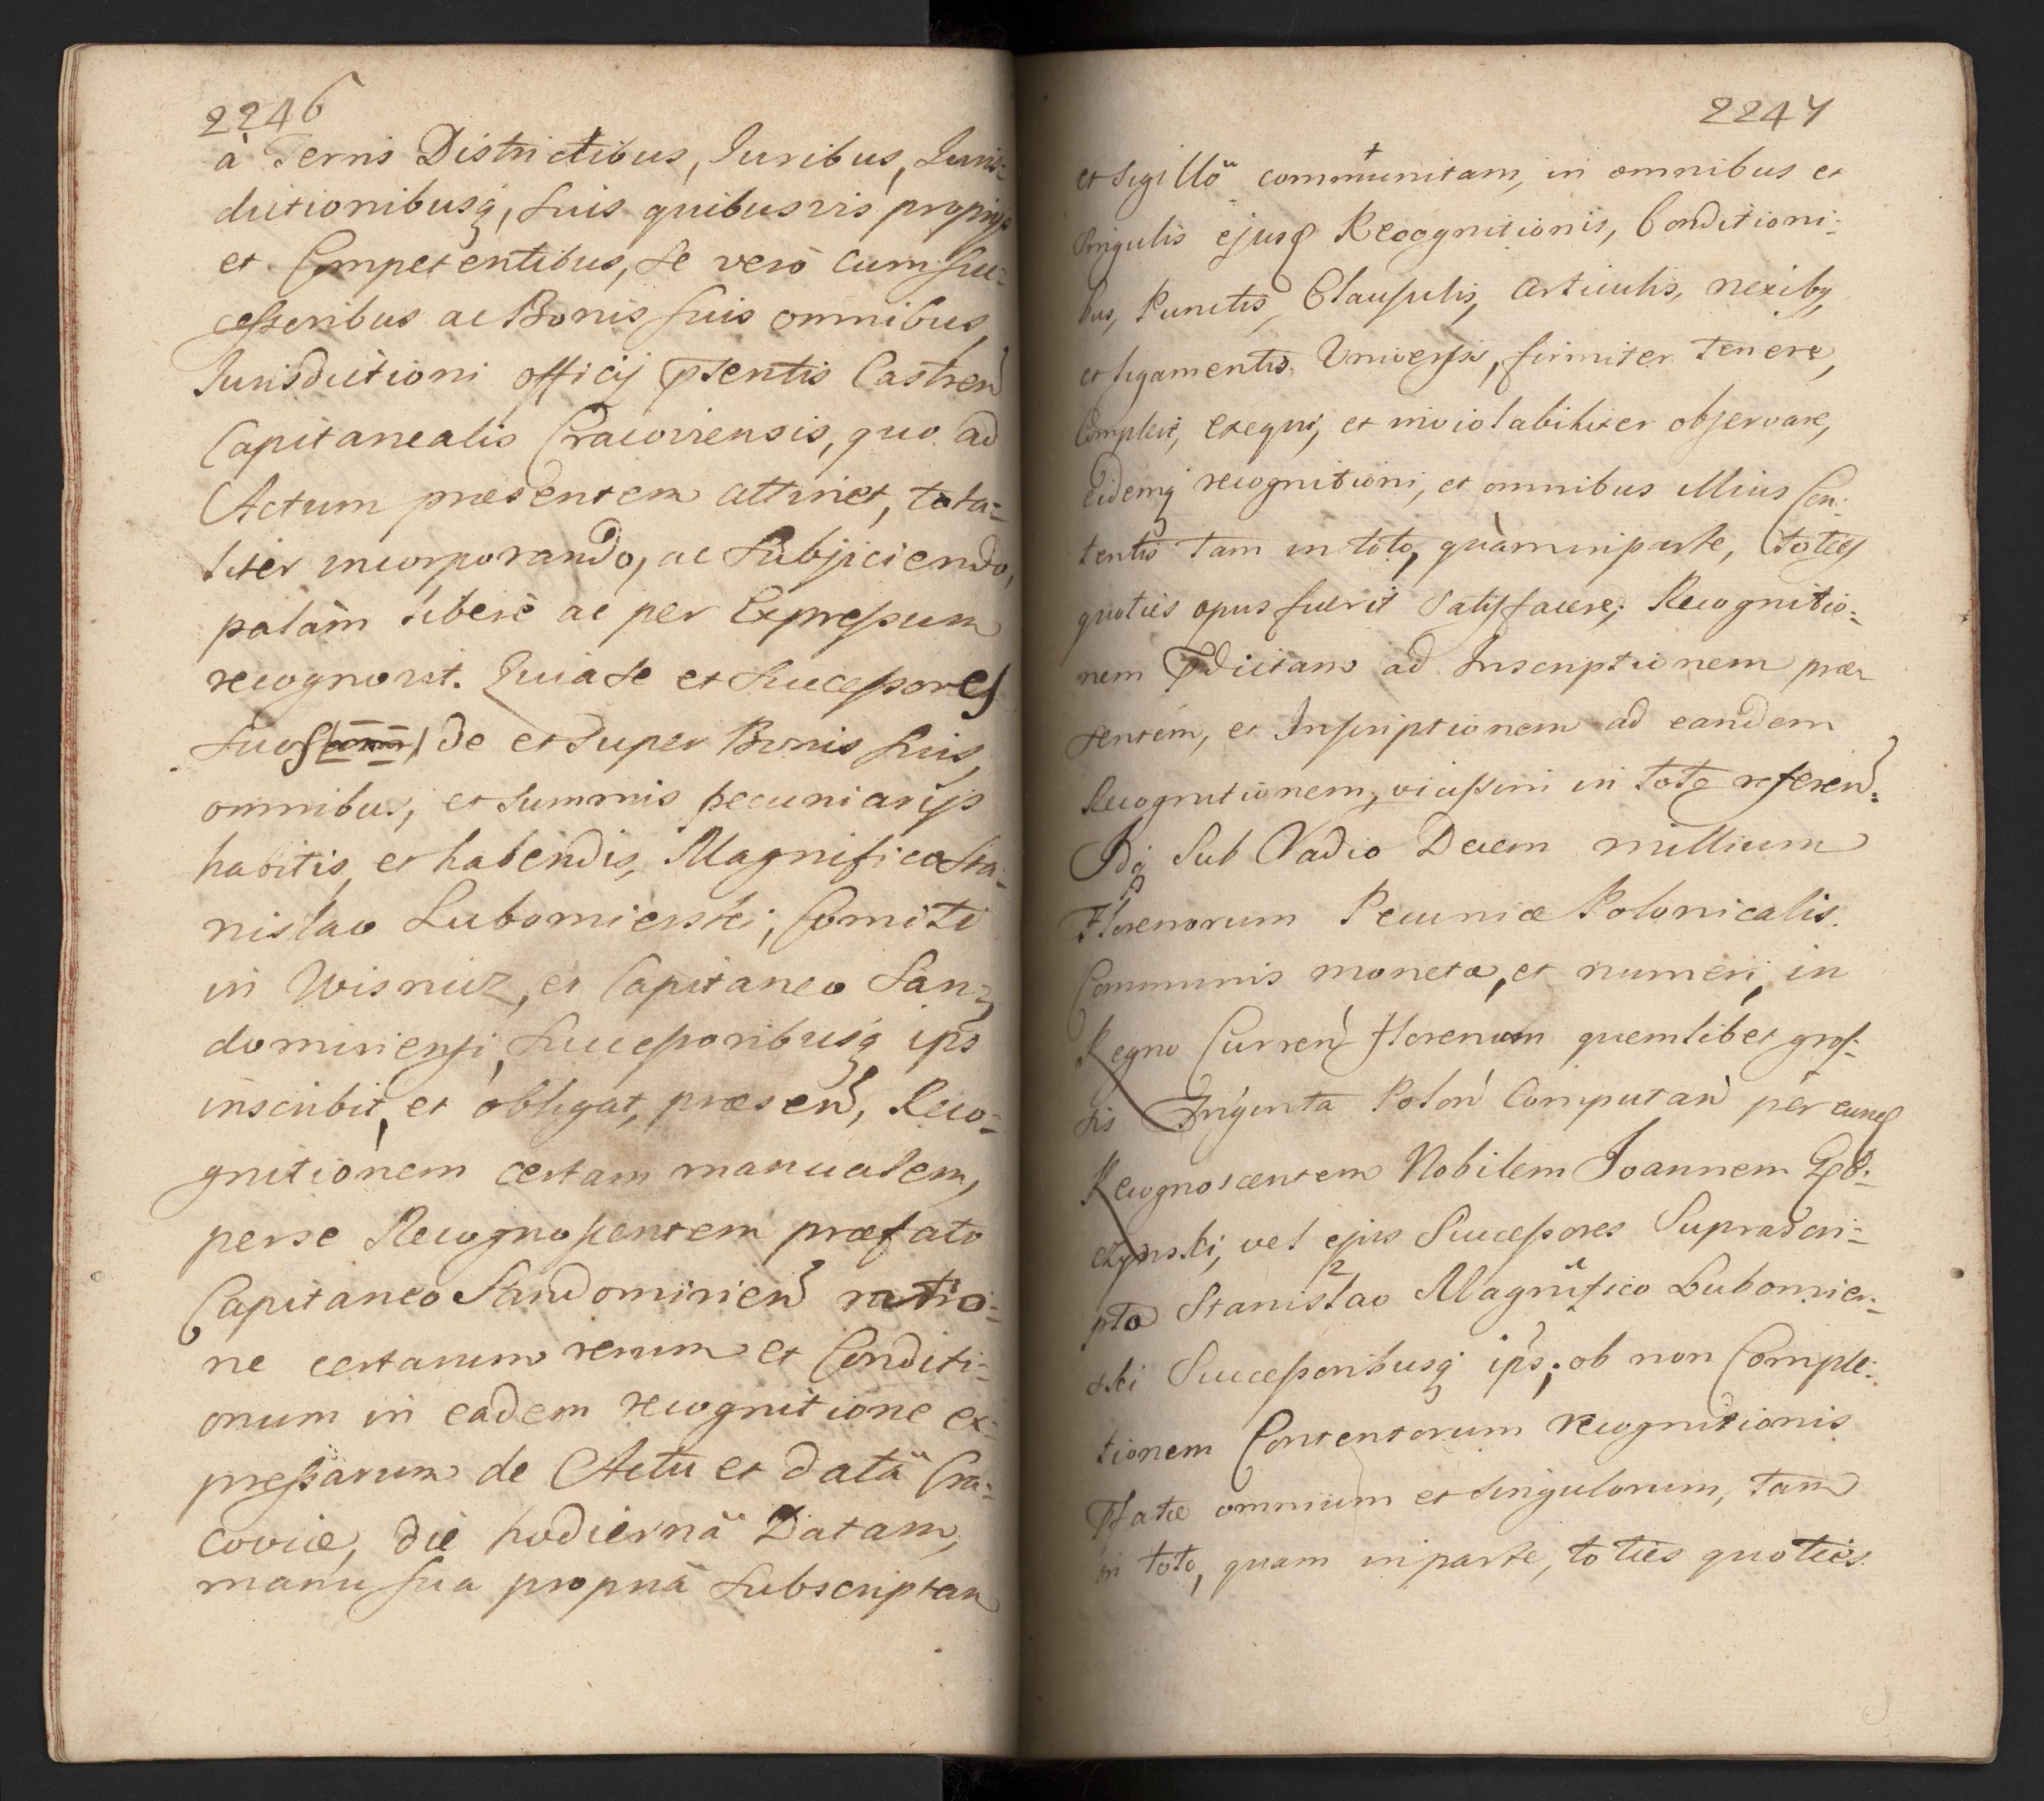 2246
à Terris Districtibus, Juribus, Juris=
dictionibusq, suis quibusvis proprijs
et Competentibus, se verò cum suc=
cessoribus ac Bonis suis omnibus,
Jurisdictioni officij pſentis Castren
Capitanealis Cracoviensis, quo ad
Actum praesentem attinet, tota=
liter incorporando, ac subjiciendo,
palàm liberè ac per Expressum
recognovit. Quia se et successores
suos de et super Bonis suis,
omnibus, et summis pecuniarijs
habitis, et habendis, Magnifico Sta=
nislao Lubomierski, Comiti
in Wisnicz, et Capitaneo San=
domiriensi, Successoribusq ips
inscribit, et obligat, praesen, Reco=
gnitionem certam manualem,
per se Recognoscentem praefato
Capitaneo Sandomirien ratio=
ne certarum rerum et Conditi=
onum in eadem recognitione ex=
pressarum de Actu et data Cra=
coviae, die hodiernä Datam,
manu sua propriä subscriptam
2247
et sigillö communitam, in omnibus et
singulis ejusq Recognitionis, Conditioni=
bus, Punctis, Clausulis, articulis, nexibq,
et ligamentis Universis, firmiter tenere,
Complere, exequi, et inviolabiliter observare,
Eidemq recognitioni, et omnibus illius Con=
tentis tam in toto, quàm in parte, toties
quoties opus fuerit satisfacere; Recognitio=
nem pdictam ad Inscriptionem prae
sentem, et Inscriptionem ad eandem
Recognitionem, vicissim in toto referen:
Idq sub Vadio Decem millium
Florenorum Pecuniae Polonicalis.
Communis monetae, et numeri, in
Regno Curren florenum quemlibet gros=
sis Triginta Polon Computan per eunq
Recognoscentem Nobilem Joannem
vel ejus Successores Suprascri=
pto Stanislao Magnifico Lubomier=
ski Successoribusq ips; ob non Comple=
tionem Contentorum recognitionis
Pfatae omnium et singulorum, tam
in toto, quam in parte, toties quoties.